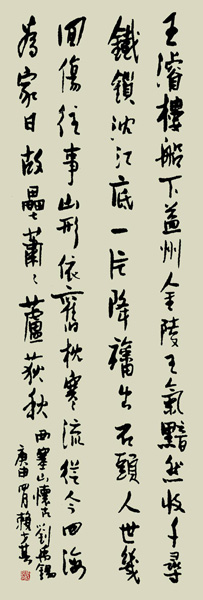 王濬樓船下益州金陵王氣黯然收千尋
鐵鎖沈江底一片降旛出石頭人世幾
回傷往事山形依舊枕寒流從今四海
為家日故壘蕭〻蘆荻秋
西塞山懷古劉禹錫
庚申賴少其